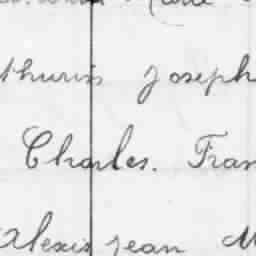 thurin Joseph
Charles. Fran
Alexis jean M